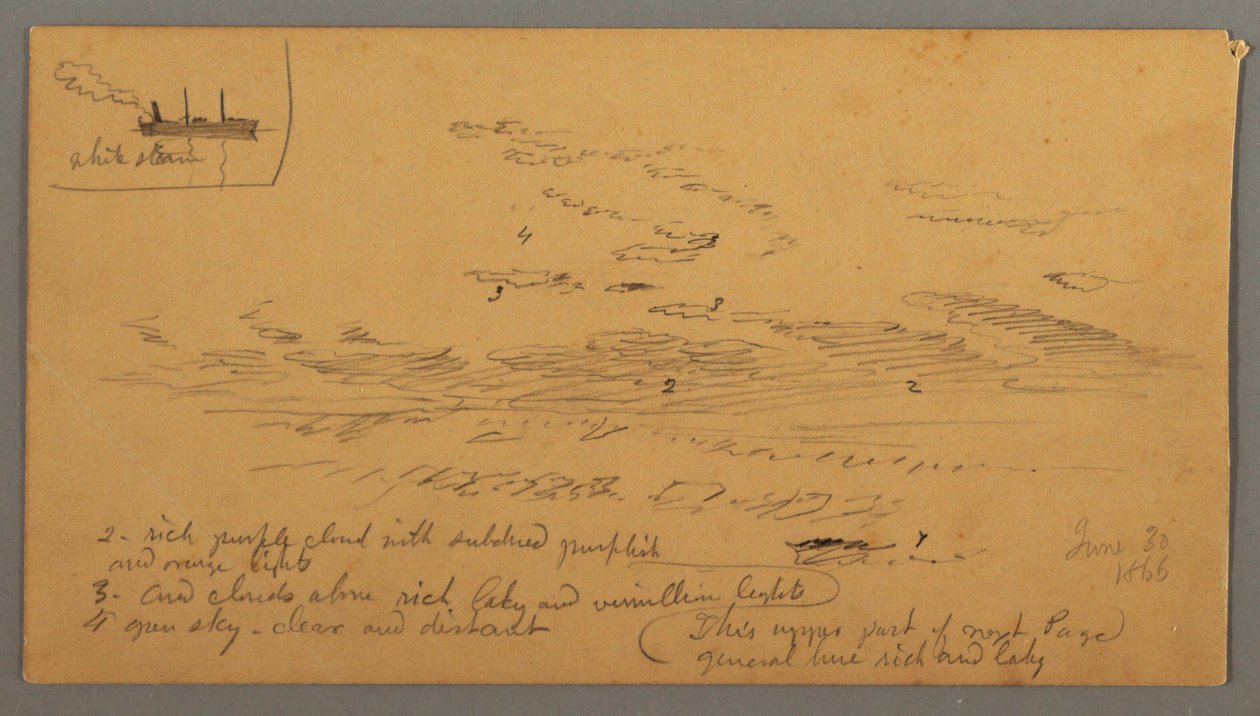 white steam
4
3
3
3
2
2
2 - rich purple cloud with subdued purplish
and orange lights
3 - and clouds above rich laky and vermillion lights
4 open sky - clear and distant
June 30
1866
This upper part of next Page
general hue rich and laky